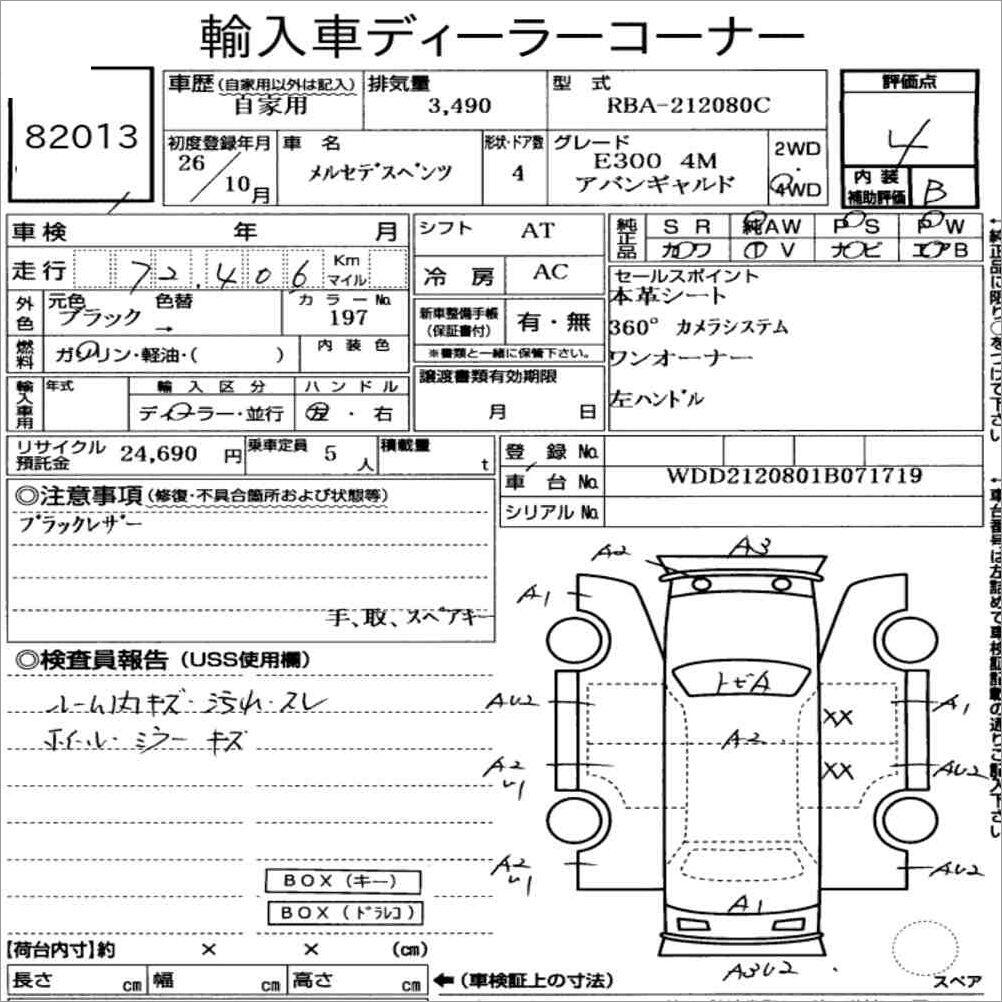 輸入車ディーラーコーナー
82013
車歴(自家用以外は記入) 自家用
排気量 3,490
型式 RBA-212080C
評価点 4
初度登録年月 26/10月
車名 メルセデスベンツ
形状・ドア数 4
グレード E300 4M
アバンギャルド
2WD
4WD
内装補助評価 B
車検 年 月
走行 72,406 Km マイル
シフト AT
冷房 AC
純正品 SR 純AW PS PW
カワ TV ナビ エアB
外色 元色 ブラック 色替 → カラーNo. 197
燃料 ガソリン・軽油・( ) 内装色
新車整備手帳(保証書付) 有・無
※書類と一緒に保管下さい。
セールスポイント
本革シート
360° カメラシステム
ワンオーナー
左ハンドル
輸入車用 年式 輸入区分 ディーラー・並行 ハンドル 左・右
譲渡書類有効期限
月 日
リサイクル預託金 24,690円
乗車定員 5人
積載量 t
登録No.
車台No. WDD2120801B071719
シリアルNo.
◎注意事項(修復・不具合箇所および状態等)
ブラックレザー
手、取、スペアキー
◎検査員報告(USS使用欄)
ルーム内キズ・汚れ・スレ
ホイール・ミラーキズ
A2 A3
A1
トビA
AU2 XX A1
A2
A2 U1 XX AU2
A2 U1 AU2
A1
A3U2
スペア
BOX(キー)
BOX(ドラレコ)
【荷台内寸】約 × × (cm)
長さ cm 幅 cm 高さ cm ←(車検証上の寸法)
←純正品に限り○をつけて下さい
←車台番号は左詰めで車検証記載の通りご記入下さい